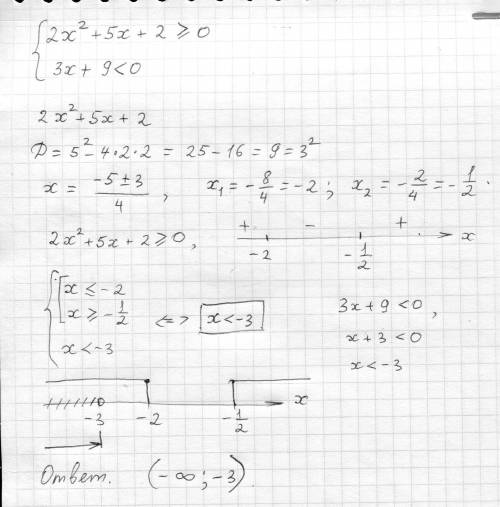 { 2x² + 5x + 2 ≥ 0
3x + 9 < 0
2x² + 5x + 2
D = 5² - 4·2·2 = 25 - 16 = 9 = 3²
x = (-5 ± 3)/4 , x₁ = -8/4 = -2 ; x₂ = -2/4 = -1/2 .
2x² + 5x + 2 ≥ 0 , + - + x
-2 -1/2
{ [ x ≤ -2
x ≥ -1/2 <=> x < -3
x < -3
3x + 9 < 0 ,
x + 3 < 0
x < -3
-3 -2 -1/2 x
Ответ. (-∞ ; -3)